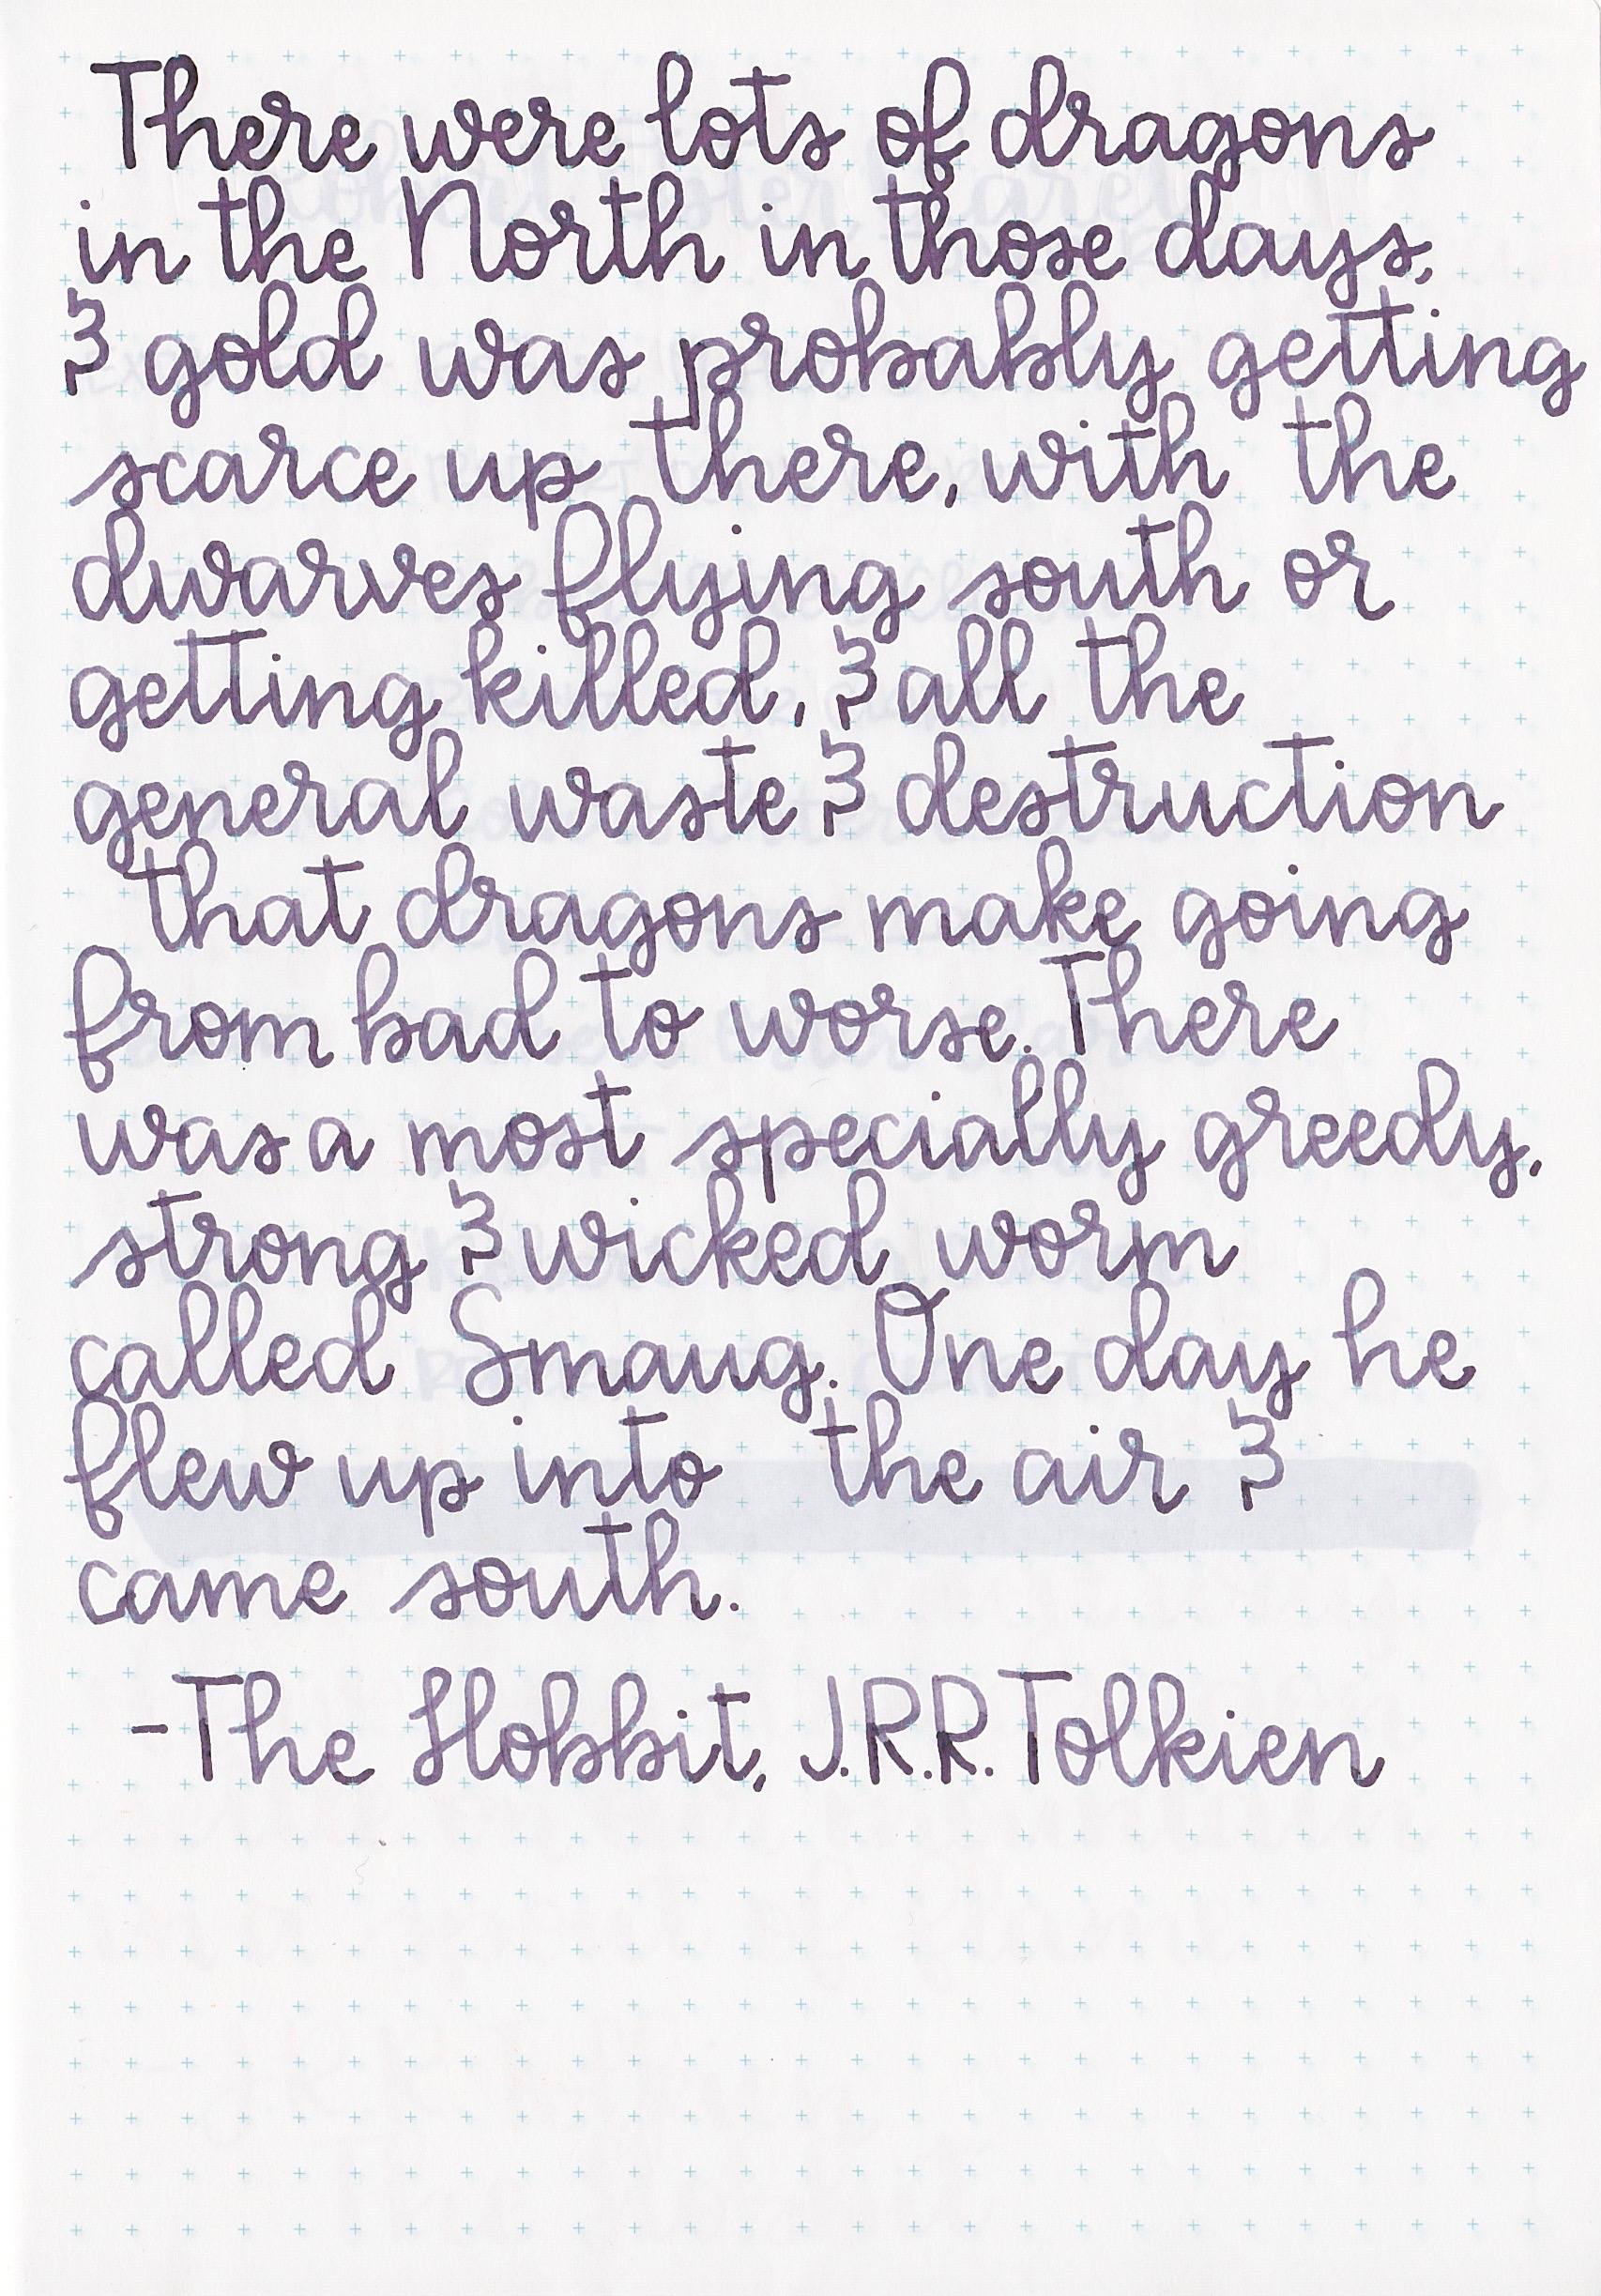 There were lots of dragons
in the North in those days,
& gold was probably getting
scarce up there, with the
dwarves flying south or
getting killed, & all the
general waste & destruction
that dragons make going
from bad to worse. There
was a most specially greedy,
strong & wicked worm
called Smaug. One day he
flew up into the air &
came south.
-The Hobbit, J.R.R. Tolkien